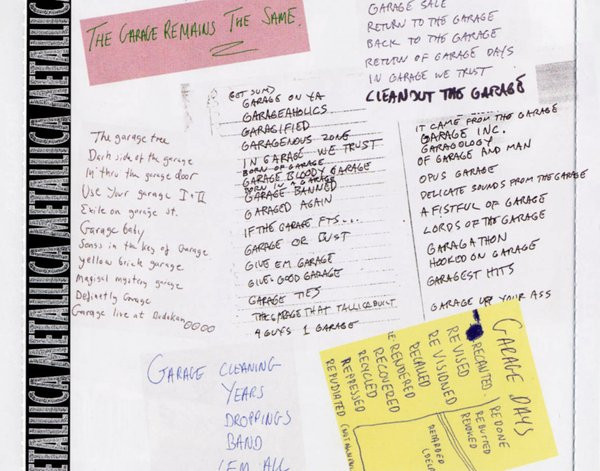 METALLICA METALLICA METALLICA METALLICA
THE GARAGE REMAINS THE SAME.
GARAGE SALE
RETURN TO THE GARAGE
BACK TO THE GARAGE
RETURN OF GARAGE DAYS
IN GARAGE WE TRUST
CLEANOUT THE GARAGE
The garage tree
Dark side of the garage
In thru the garage door
Use Your garage I + II
Exile on garage st.
Garage baby
Songs in the key of Garage
yellow brick garage
Magical mystery garage
Definetly Garage
Garage live at Budokan
GET SUM)
GARAGE ON YA
GARAGEAHOLICS
GARAGIFIED
GARAGENOUS ZONE
IN GARAGE WE TRUST
BORN OF GARAGE
GARAGE BLOODY GARAGE
BORN IN A GARAGE
GARAGE BANNED
GARAGED AGAIN
IF THE GARAGE FTS...
GARAGE OR BUST
GIVE EM GARAGE
GIVE GOOD GARAGE
GARAGE TIES
THE GARAGE THAT TALLICA BUILT
4 GUYS 1 GARAGE
IT CAME FROM THE GARAGE
GARAGE INC.
GARAGOLOGY
OF GARAGE AND MAN
OPUS GARAGE
DELICATE SOUNDS FROM THE GARAGE
A FISTFUL OF GARAGE
LORDS OF THE GARAGE
GARAGATHON
HOOKED ON GARAGE
GARAGEST HITS
GARAGE UP YOUR ASS
GARAGE CLEANING
YEARS
DROPPINGS
BAND
'EM ALL
GARAGE DAYS
REDONE
REBUTTED
REVOKED
RECANTED
REVISED
RE VISIONED
RECALLED
RE RENDERED
RECOVERED
RECYCLED
REPRESSED
REPUDIATED
RETARDED